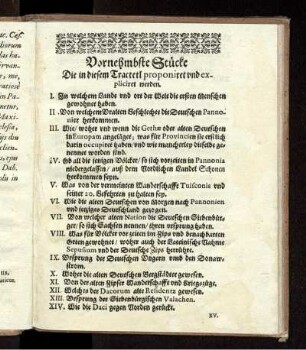 Vornehmbste Stücke
Die in diesem Tractetl proponiret vnd ex-
pliciret werden.
I. In welchem Lande vnd ort der Welt die ersten Menschen
gewohnet haben.
II. Von welchem Uralten Geschlechte die Deutschen Panno-
nier herkommen.
III. Wie/ woher vnd wenn die Gethæ oder alten Deutschen
in Europam angelãget/ was für Provincien sie erstlich
darin occupiret haben/ vnd wie mancherley dieselbe ge-
nennet worden sind.
IV. Ob all die jenigen Völcker/ so sich vorzeiten in Pannonia
niedergelassen/ auß dem Nordischen Landel Schonen
herkommen seyn.
V. Was von der vermeineten Wanderschafft Tuisconis vnd
seiner 20. Gefehrten zu halten sey.
VI. Wie die Deutschen von Morgen nach Pannonien
vnd jetziges Deutschland gezogen.
VII. Von welcher alten Nation die Deutschen Siebenbür-
ger/ so sich Sachsen nennen/ ihren vrsprung haben.
VIII. Was für Völcker vor zeiten im Zips vnd benachbarten
Orten gewohnet/ woher auch der Lateinische Nahme
Sepusium vnd der Deutsche Zips herrühre.
IX. Ursprung der Deutschen Ungern vmb den Donaw-
strom.
X. Woher die alten Deutschen Bergstädter gewesen.
XI. Von der alten Zipser Wanderschafft vnd Kriegszüge.
XII. Welches der Dacorum alte Residentz gewesen.
XIII. Ursprung der Siebenbürgischen Valachen.
XIV. Wie die Daci gegen Norden gerückt.
XV.